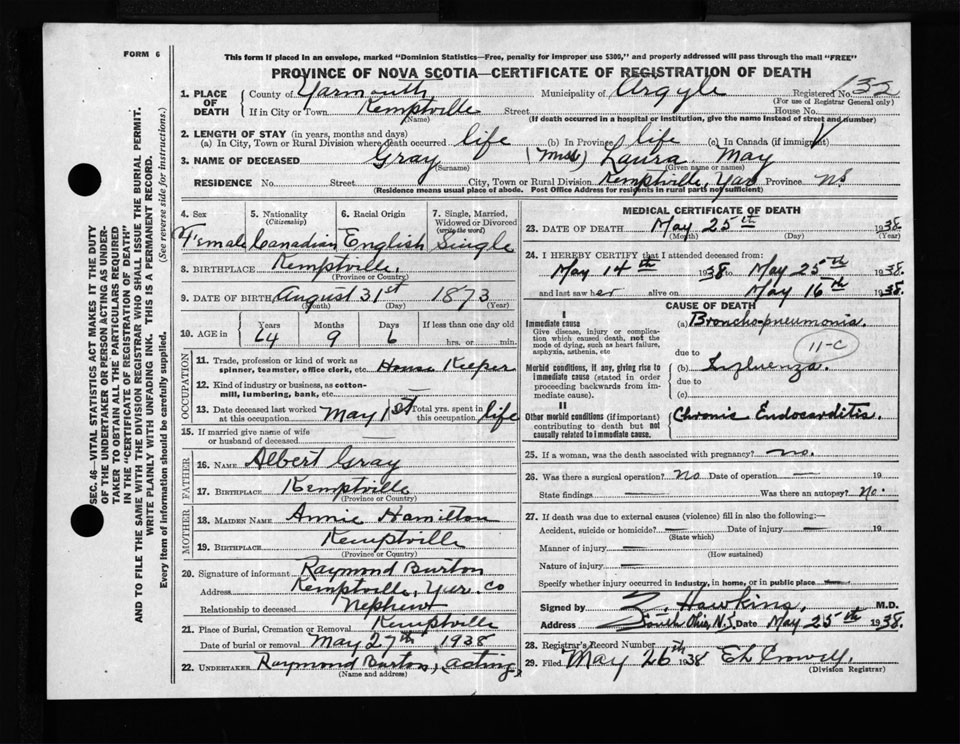 FORM 6
This form if placed in an envelope, marked "Dominion Statistics—Free, penalty for improper use $300," and properly addressed will pass through the mail "FREE"
PROVINCE OF NOVA SCOTIA—CERTIFICATE OF REGISTRATION OF DEATH
1. PLACE OF DEATH County of Yarmouth Municipality of Argyle Registered No. 32
(For use of Registrar General only)
If in City or Town Kemptville Street House No.
(Name) (If death occurred in a hospital or institution, give the name instead of street and number)
2. LENGTH OF STAY (in years, months and days)
(a) In City, Town or Rural Division where death occurred life (b) In Province life (c) In Canada (if immigrant)
3. NAME OF DECEASED Gray (Miss) Laura May
(Surname) (Given name or names)
RESIDENCE No. Street City, Town or Rural Division Kemptville, Yar Province NS
(Residence means usual place of abode. Post Office Address for residents in rural parts not sufficient)
4. Sex 5. Nationality (Citizenship) 6. Racial Origin 7. Single, Married, Widowed or Divorced (write the word)
Female Canadian English Single
8. BIRTHPLACE Kemptville,
(Province or Country)
9. DATE OF BIRTH August 31st 1873
(Month) (Day) (Year)
10. AGE in Years Months Days If less than one day old
64 9 6 hrs. or min.
OCCUPATION
11. Trade, profession or kind of work as spinner, teamster, office clerk, etc. House Keeper
12. Kind of industry or business, as cotton-mill, lumbering, bank, etc.
13. Date deceased last worked at this occupation May 1st Total yrs. spent in this occupation life
15. If married give name of wife or husband of deceased
FATHER
16. NAME Albert Gray
17. BIRTHPLACE Kemptville
(Province or Country)
MOTHER
18. MAIDEN NAME Annie Hamilton
19. BIRTHPLACE Kemptville
(Province or Country)
20. Signature of informant Raymond Burton
Address Kemptville, Yar. Co
Relationship to deceased Nephew
21. Place of Burial, Cremation or Removal Kemptville
Date of burial or removal May 27th 1938
22. UNDERTAKER Raymond Burton, acting
(Name and address)
MEDICAL CERTIFICATE OF DEATH
23. DATE OF DEATH May 25th 1938
(Month) (Day) (Year)
24. I HEREBY CERTIFY that I attended deceased from:
May 14th 1938 to May 25th 1938
and last saw her alive on May 16th 1938.
CAUSE OF DEATH
I
Immediate cause (a) Broncho-pneumonia.
Give disease, injury or complication which caused death, not the mode of dying, such as heart failure, asphyxia, asthenia, etc
11-C
due to
Morbid conditions, if any, giving rise to immediate cause (stated in order proceeding backwards from immediate cause). (b) Influenza.
due to
(c)
II
Other morbid conditions (if important) contributing to death but not causally related to immediate cause. Chronic Endocarditis.
25. If a woman, was the death associated with pregnancy? no.
26. Was there a surgical operation? No Date of operation — 19
State findings — Was there an autopsy? No.
27. If death was due to external causes (violence) fill in also the following:—
Accident, suicide or homicide? — Date of injury — 19
(State which)
Manner of injury —
(How sustained)
Nature of injury —
Specify whether injury occurred in industry, in home, or in public place —
Signed by Z. Hawkins, M.D.
Address South Ohio, N.S. Date May 25th 1938.
28. Registrar's Record Number
29. Filed May 26th 1938
(Division Registrar)
SEC. 46—VITAL STATISTICS ACT MAKES IT THE DUTY
OF THE UNDERTAKER OR PERSON ACTING AS UNDER-
TAKER TO OBTAIN ALL THE PARTICULARS REQUIRED
IN THE "CERTIFICATE OF REGISTRATION OF DEATH"
AND TO FILE THE SAME WITH THE DIVISION REGISTRAR WHO SHALL ISSUE THE BURIAL PERMIT.
WRITE PLAINLY WITH UNFADING INK. THIS IS A PERMANENT RECORD.
Every item of information should be carefully supplied. (See reverse side for instructions.)